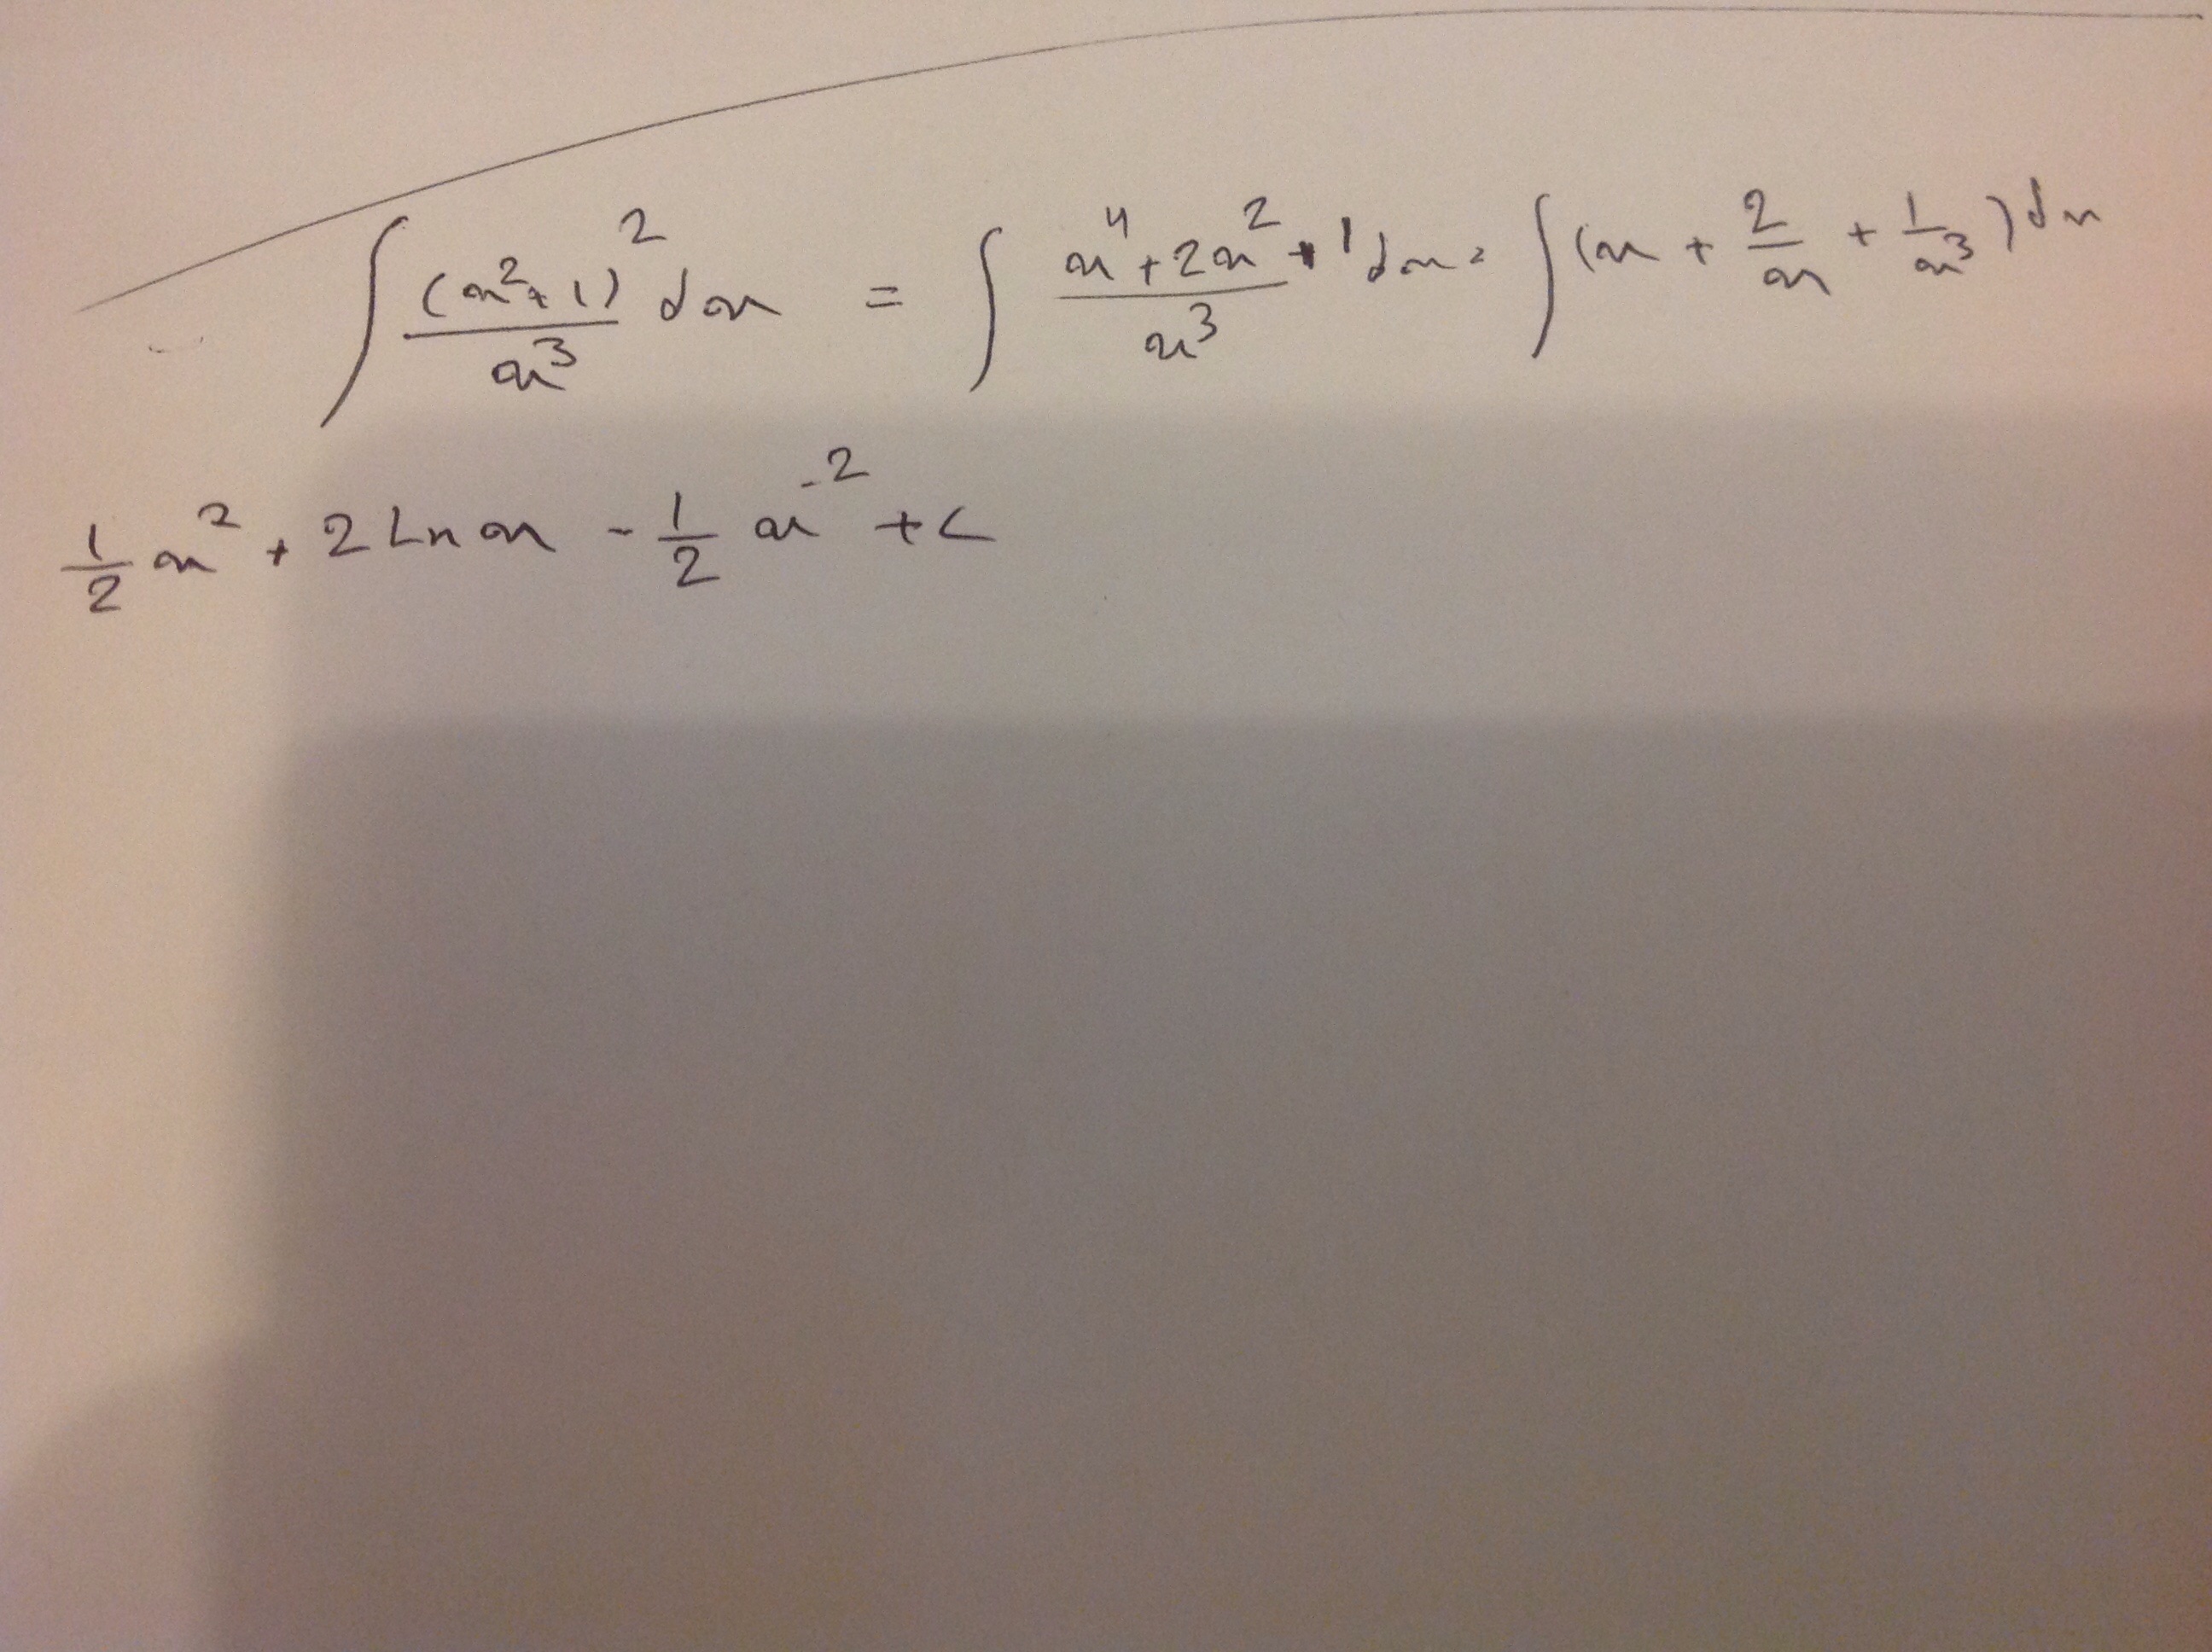 ∫ (x²+1)²/x³ dx = ∫ (x⁴+2x²+1)/x³ dx = ∫(x + 2/x + 1/x³)dx
1/2 x² + 2 Ln x - 1/2 x⁻² + C